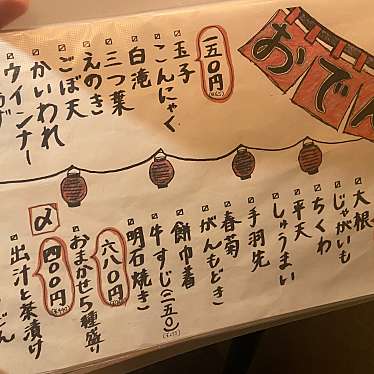 おでん
一五〇円
玉子
こんにゃく
白滝
三つ葉
えのき
ごぼ天
かいわれ
ウインナー
大根
じゃがいも
ちくわ
平天
しゅうまい
手羽先
春菊
がんもどき
餅巾着
牛すじ(二五〇)
明石焼き
六八〇円
おまかせ5種盛り
〆
四〇〇円
出汁と茶漬け